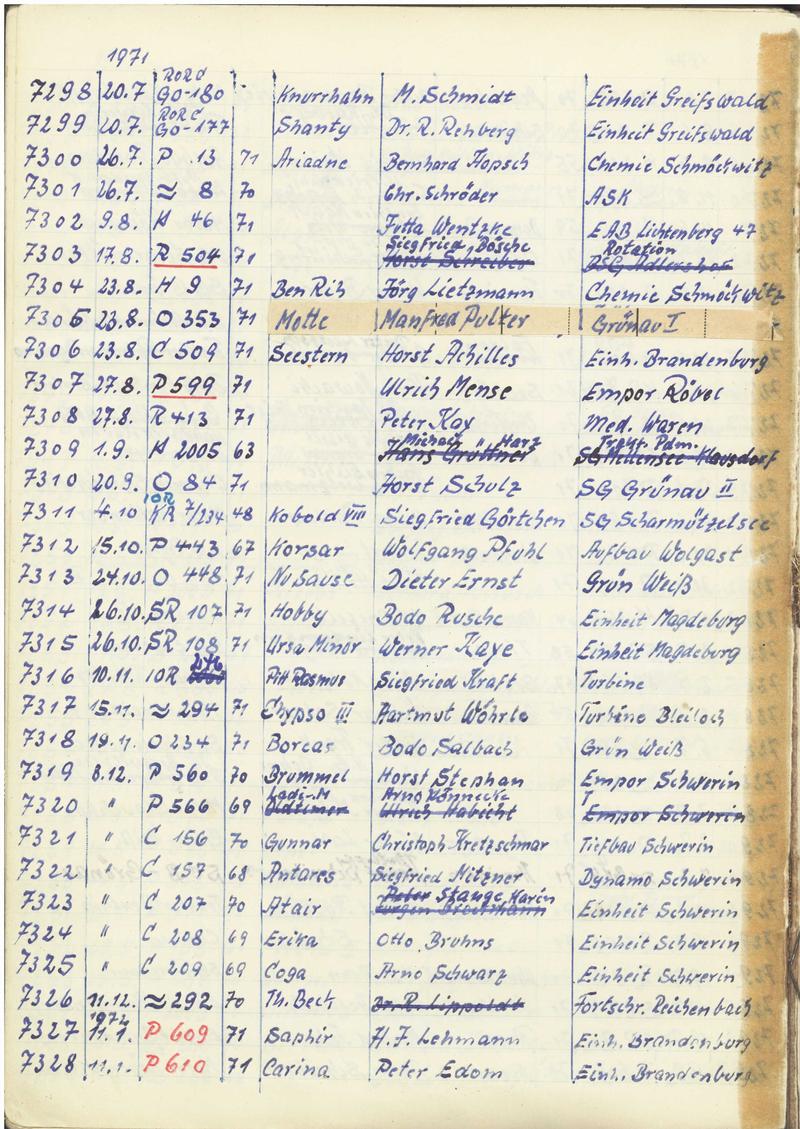 1971
7298 20.7 RORC GO-180 Knurrhahn M. Schmidt Einheit Greifswald
7299 20.7. RORC GO-177 Shanty Dr. R. Rehberg Einheit Greifswald
7300 26.7. P 13 71 Ariadne Bernhard Hopsch Chemie Schmöckwitz
7301 26.7. ≈ 8 70 Chr. Schröder ASK
7302 9.8. H 46 71 Jutta Wentzke EAB Lichtenberg 47
Siegfried Bösche Rotation
7303 17.8. R 504 71 Horst Schreiber BSG Adlershof
7304 23.8. H 9 71 Ben Rih Jörg Lietzmann Chemie Schmöckwitz
7305 23.8. O 353 71 Motte Manfred Pulter Grünau I
7306 23.8. C 509 71 Seestern Horst Achilles Einh. Brandenburg
7307 27.8. P 599 71 Ulrich Mense Empor Röbel
7308 27.8. R 413 71 Peter Kay Med. Waren
Michael Harz Pdm.
7309 1.9. H 2005 63 Hans SG Mellensee Klausdorf
7310 20.9. O 84 71 Horst Schulz SG Grünau II
7311 4.10 IOR KR 7/234 48 Kobold VIII Siegfried Görtchen SG Scharmützelsee
7312 15.10. P 443 67 Korsar Wolfgang Pfuhl Aufbau Wolgast
7313 24.10. O 448 71 Nu Sause Dieter Ernst Grün Weiß
7314 26.10. SR 107 71 Hobby Bodo Rusche Einheit Magdeburg
7315 26.10. SR 108 71 Ursa Minor Werner Kaye Einheit Magdeburg
7316 10.11. IOR 246 Pitt Rasmus Siegfried Kraft Turbine
7317 15.11. ≈ 294 71 Chypso III Hartmut Wöhrle Turbine Bleiloch
7318 19.11. O 234 71 Boreas Bodo Salbach Grün Weiß
7319 8.12. P 560 70 Brummel Horst Stephan Empor Schwerin
Ladi-M Arno Könnecke
7320 " P 566 69 Oldtimer Ulrich Habicht Empor Schwerin
7321 " C 156 70 Gunnar Christoph Kretzschmar Tiefbau Schwerin
7322 " C 157 68 Antares Siegfried Nitzner Dynamo Schwerin
Peter Stange, Karin
7323 " C 207 70 Atair Jürgen Einheit Schwerin
7324 " C 208 69 Erika Otto Bruhns Einheit Schwerin
7325 " C 209 69 Coga Arno Schwarz Einheit Schwerin
7326 11.12. ≈ 292 70 Th. Beck Dr. R. Lippoldt Fortschr. Reichenbach
1972
7327 11.1. P 609 71 Saphir H. J. Lehmann Einh. Brandenburg
7328 11.1. P 610 71 Carina Peter Edom Einh. Brandenburg